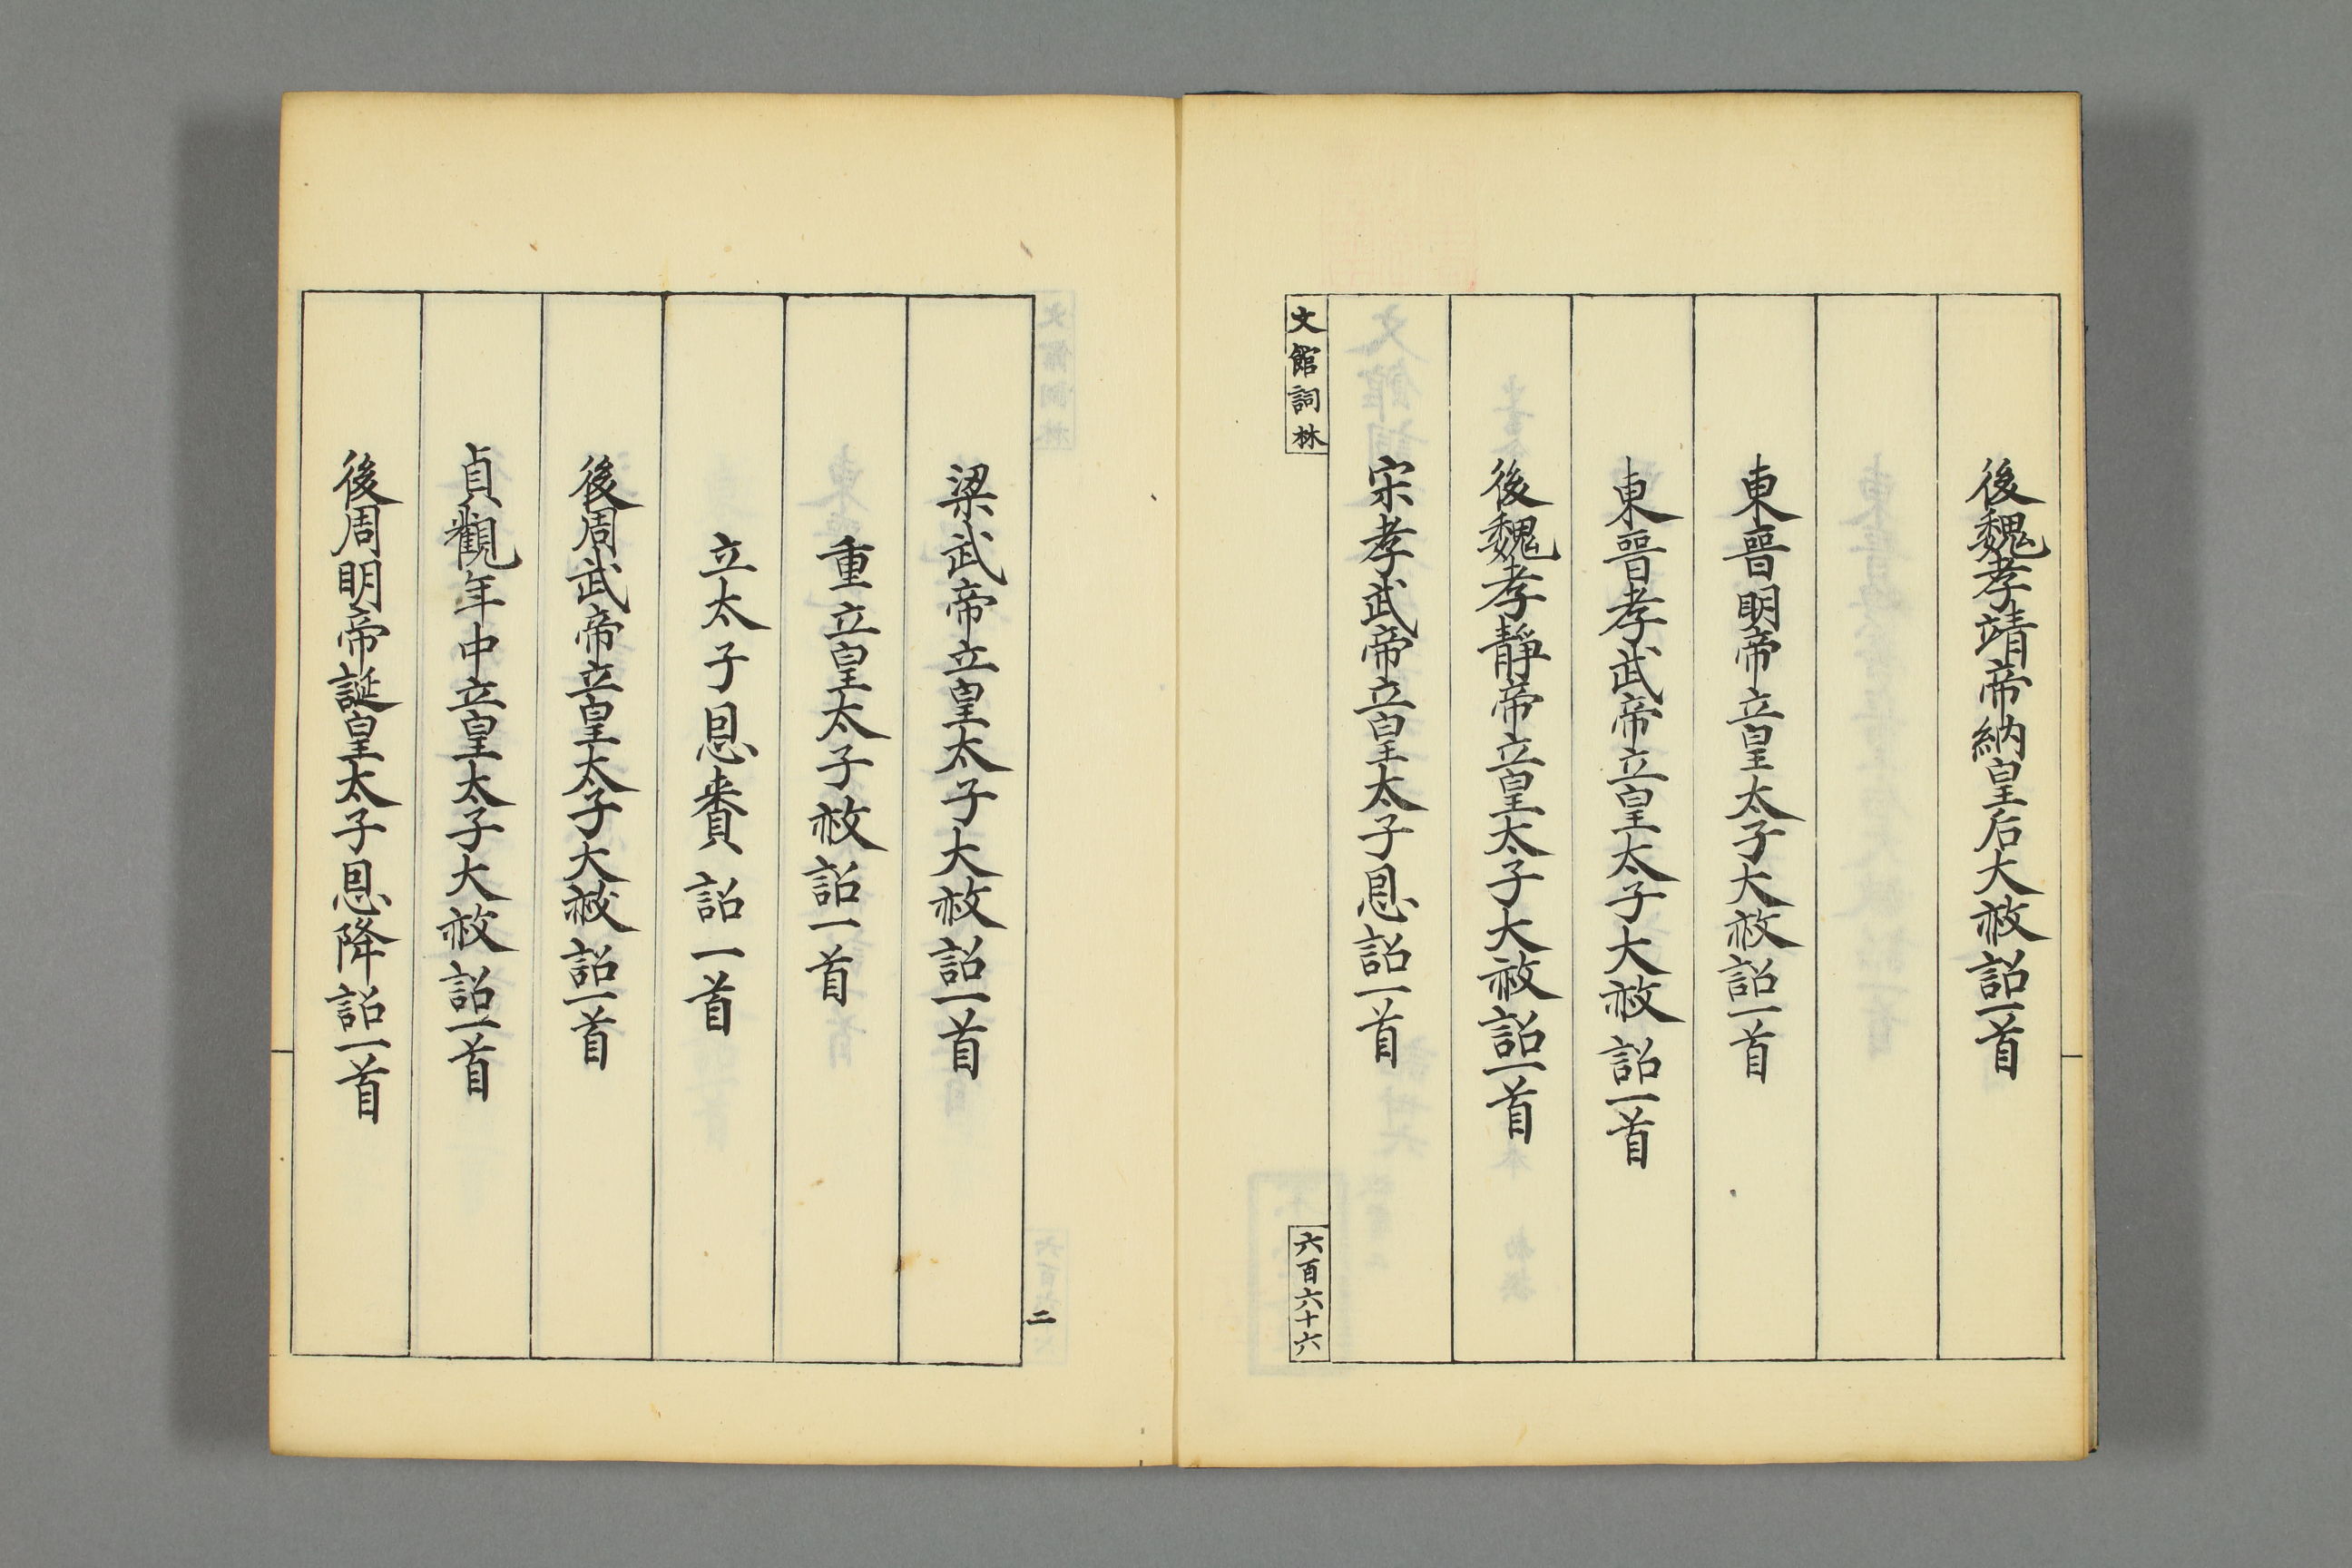 後魏孝靖帝納皇后大赦詔一首
東晉明帝立皇太子大赦詔一首
東晉孝武帝立皇太子大赦詔一首
後魏孝靜帝立皇太子大赦詔一首
宋孝武帝立皇太子恩詔一首
文館詞林
六百六十六
二
梁武帝立皇太子大赦詔一首
重立皇太子赦詔一首
立太子恩賚詔一首
後周武帝立皇太子大赦詔一首
貞觀年中立皇太子大赦詔一首
後周明帝誕皇太子恩降詔一首